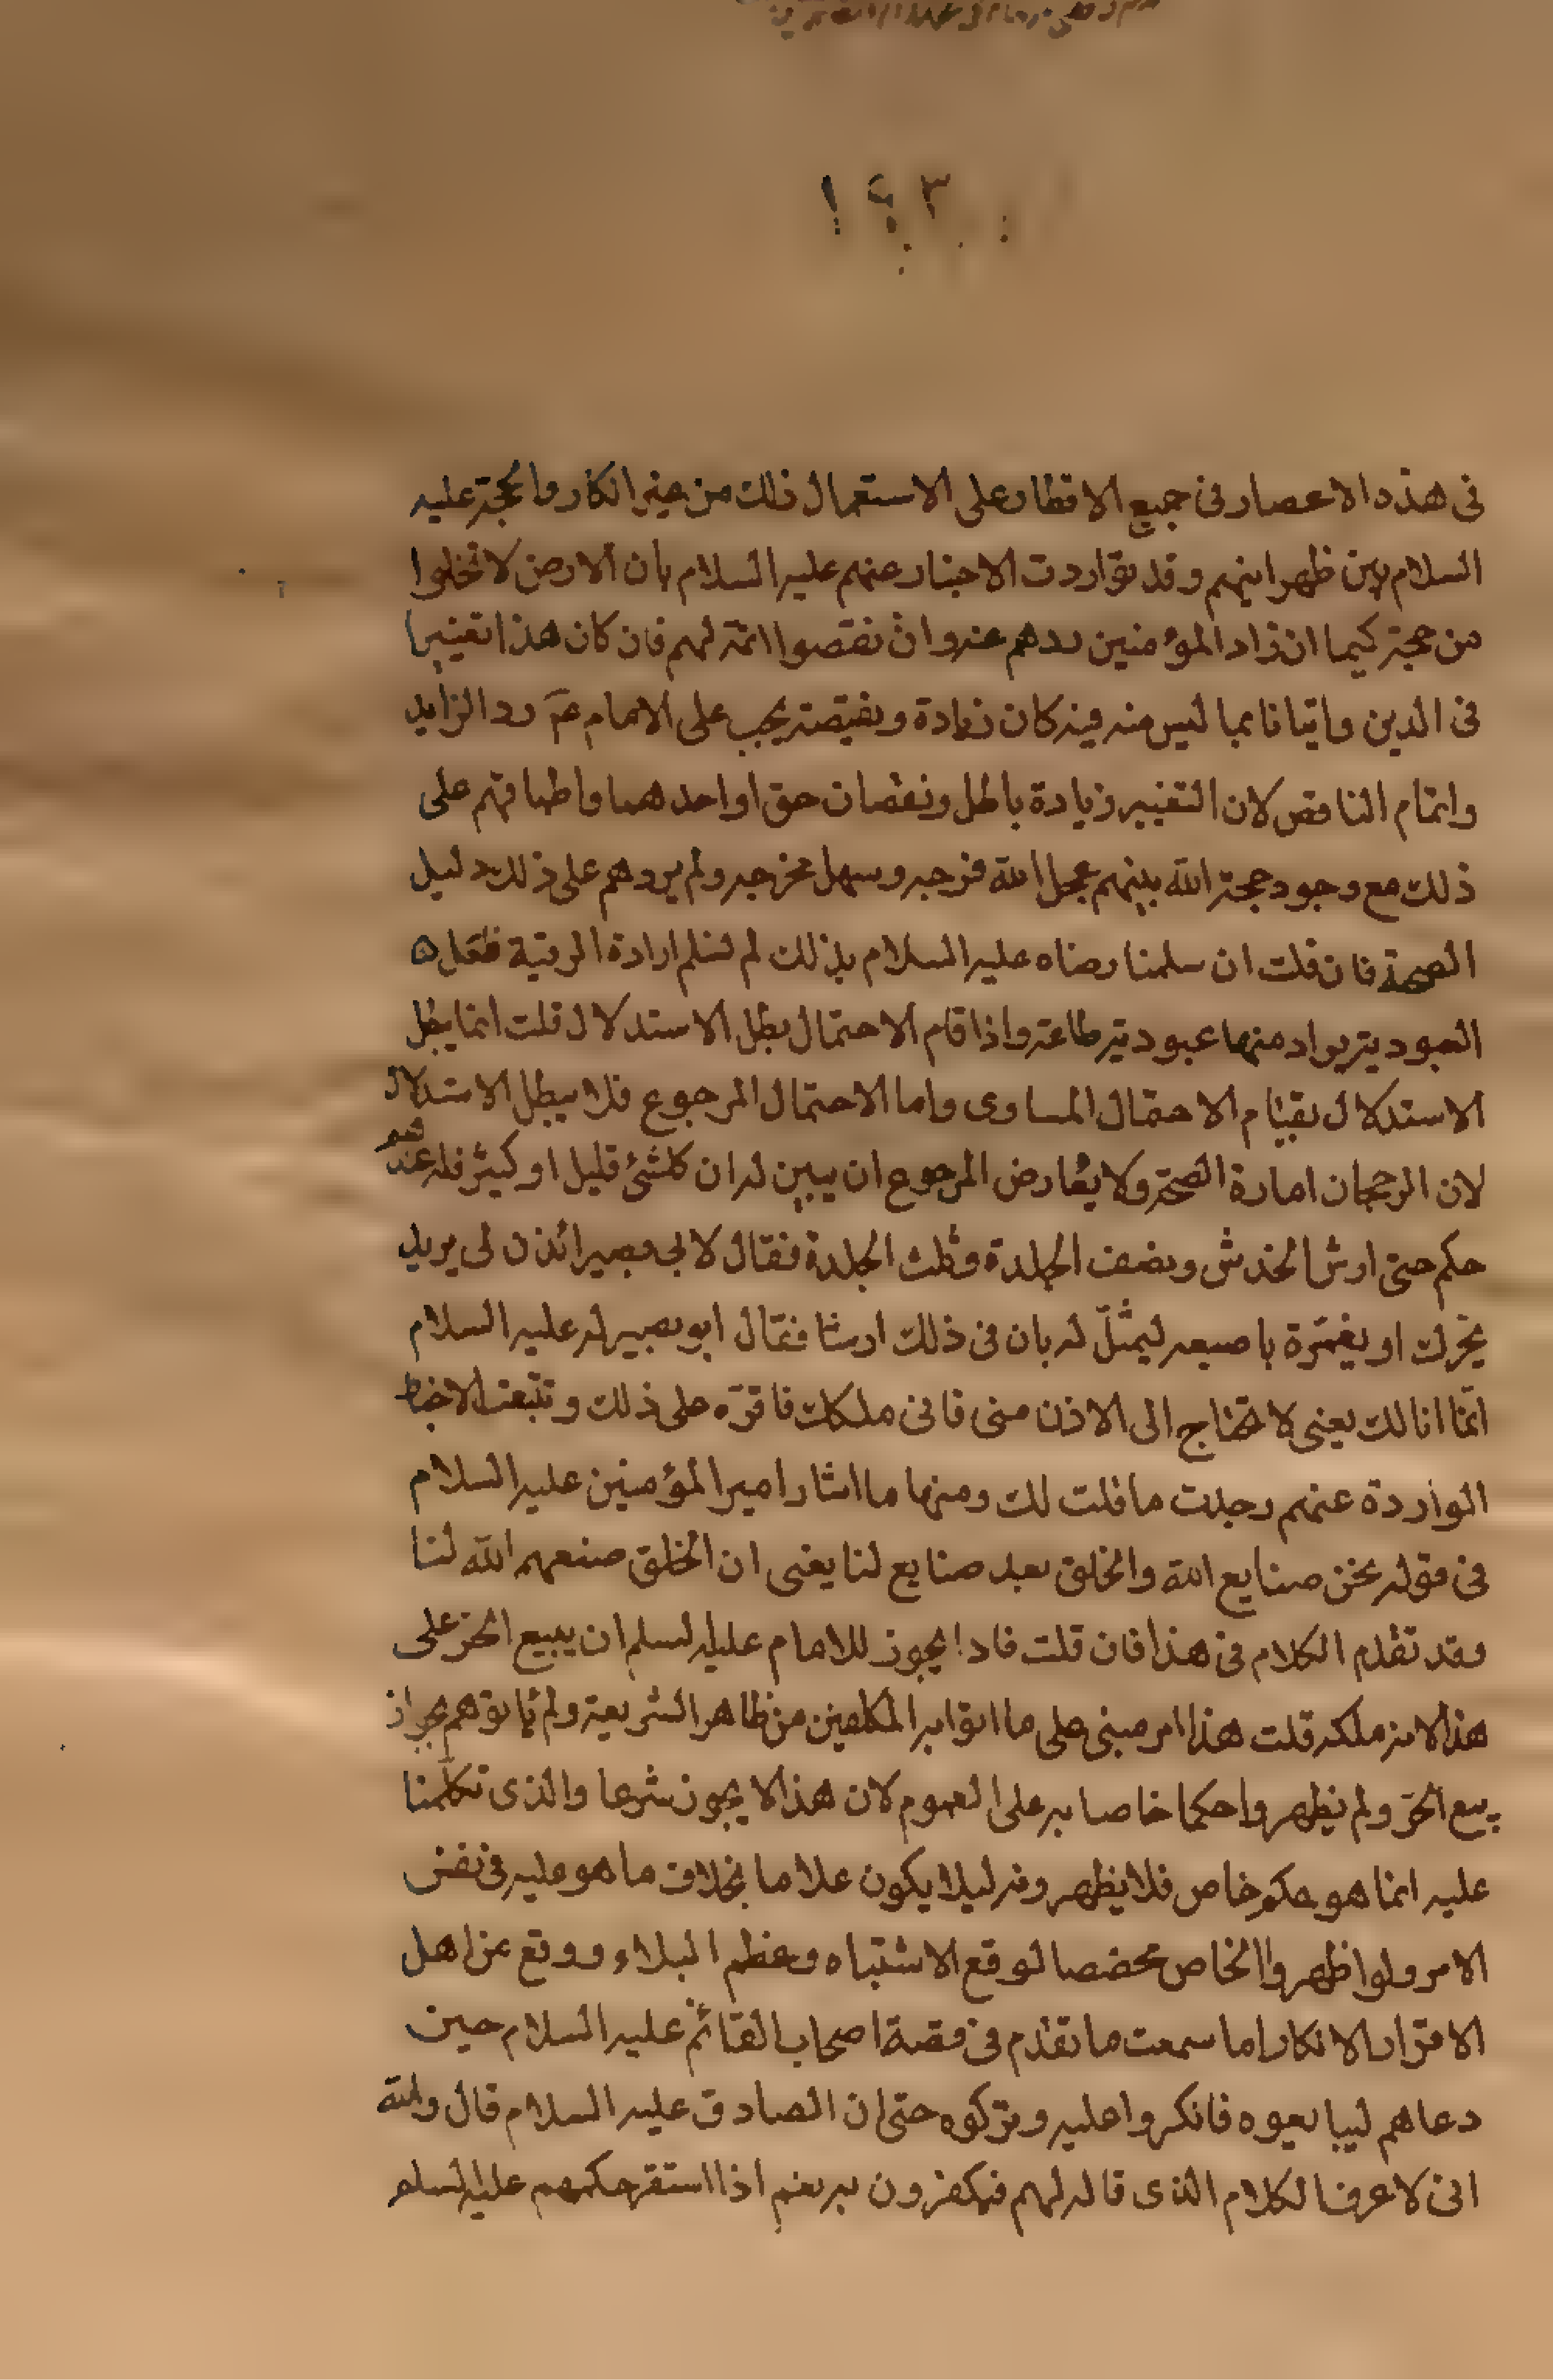 فى هذه الاعصار فى جميع الاقطار على الاستعمال ذلك من غير انكار والحجة عليه
السلام بين ظهرانيهم وقد تواردت الاخبار عنهم عليه السلام بان الارض لا تخلوا
من حجة كيما ان زاد المؤمنين ردهم عنه وان نقصوا اتمه لهم فان كان هذا تغييرا
فى الدين واتيانا بما ليس منه فيه كان زيادة ونقيصة يجب على الامام عم رد الزايد
واتمام الناقص لان التغيير زيادة باطل ونقصان حق او احدهما واطباقهم على
ذلك مع وجود حجة الله بينهم عجل الله فرجه وسهل مخرجه ولم يردهم على ذلك دليل
الصحة فان قلت ان سلمنا رضاه عليه السلام بذلك لم نسلم ارادة الرقية فلعل
العبودية يراد منها عبودية طاعة واذا قام الاحتمال بطل الاستدلال قلت انما يبطل
الاستدلال بقيام الاحتمال المساوى واما الاحتمال المرجوع فلا يبطل الاستدلال
لان الرجحان امارة الصحة ولا يعارض المرجوع ان يبين له ان كلشئ قليل او كثير فله عندهم
حكم حتى ارش الخدش ونصف الجلدة وثلث الجلدة فقال لابى بصير ائذن لى يريد
او يغمزه باصبعه ليمثل له بان فى ذلك ارشا فقال ابو بصير له عليه السلام
انما انا لك يعنى لا تحتاج الى الاذن منى فانى ملكك فاقره على ذلك وتتبعت الاخبار
الواردة عنهم وجدت ما قلت لك ومنها ما اشار امير المؤمنين عليه السلام
فى قوله نحن صنايع الله والخلق بعد صنايع لنا يعنى ان الخلق صنعهم الله لنا
وقد تقدم الكلام فى هذا فان قلت فاذا يجوز للامام عليه لسلم ان يبيع الحر على
هذا لانه ملكه قلت هذا امر مبنى على ما اتوا به المكلفين من ظاهر الشريعة ولم ياتوهم بجواز
بيع الحر ولم يظهروا حكما خاصا به على العموم لان هذا لا يجوز شرعا والذى تكلمنا
عليه انما هو حكم خاص فلا يظهرونه ليلا يكون علاما بخلاف ما هو عليه فى نفس
الامر ولو اظهروا الخاص مخصصا لوقع الاشتباه وعظم البلاء ووقع من اهل
الاقرار الانكار اما سمعت ما تقدم فى قصة اصحاب القائم عليه السلام حين
دعاهم ليبايعوه فانكروا عليه وتركوه حتى ان الصادق عليه السلام قال والله
انى لاعرف الكلام الذى قاله لهم فيكفرون به نعم اذا استقر حكمهم عليه لسلم